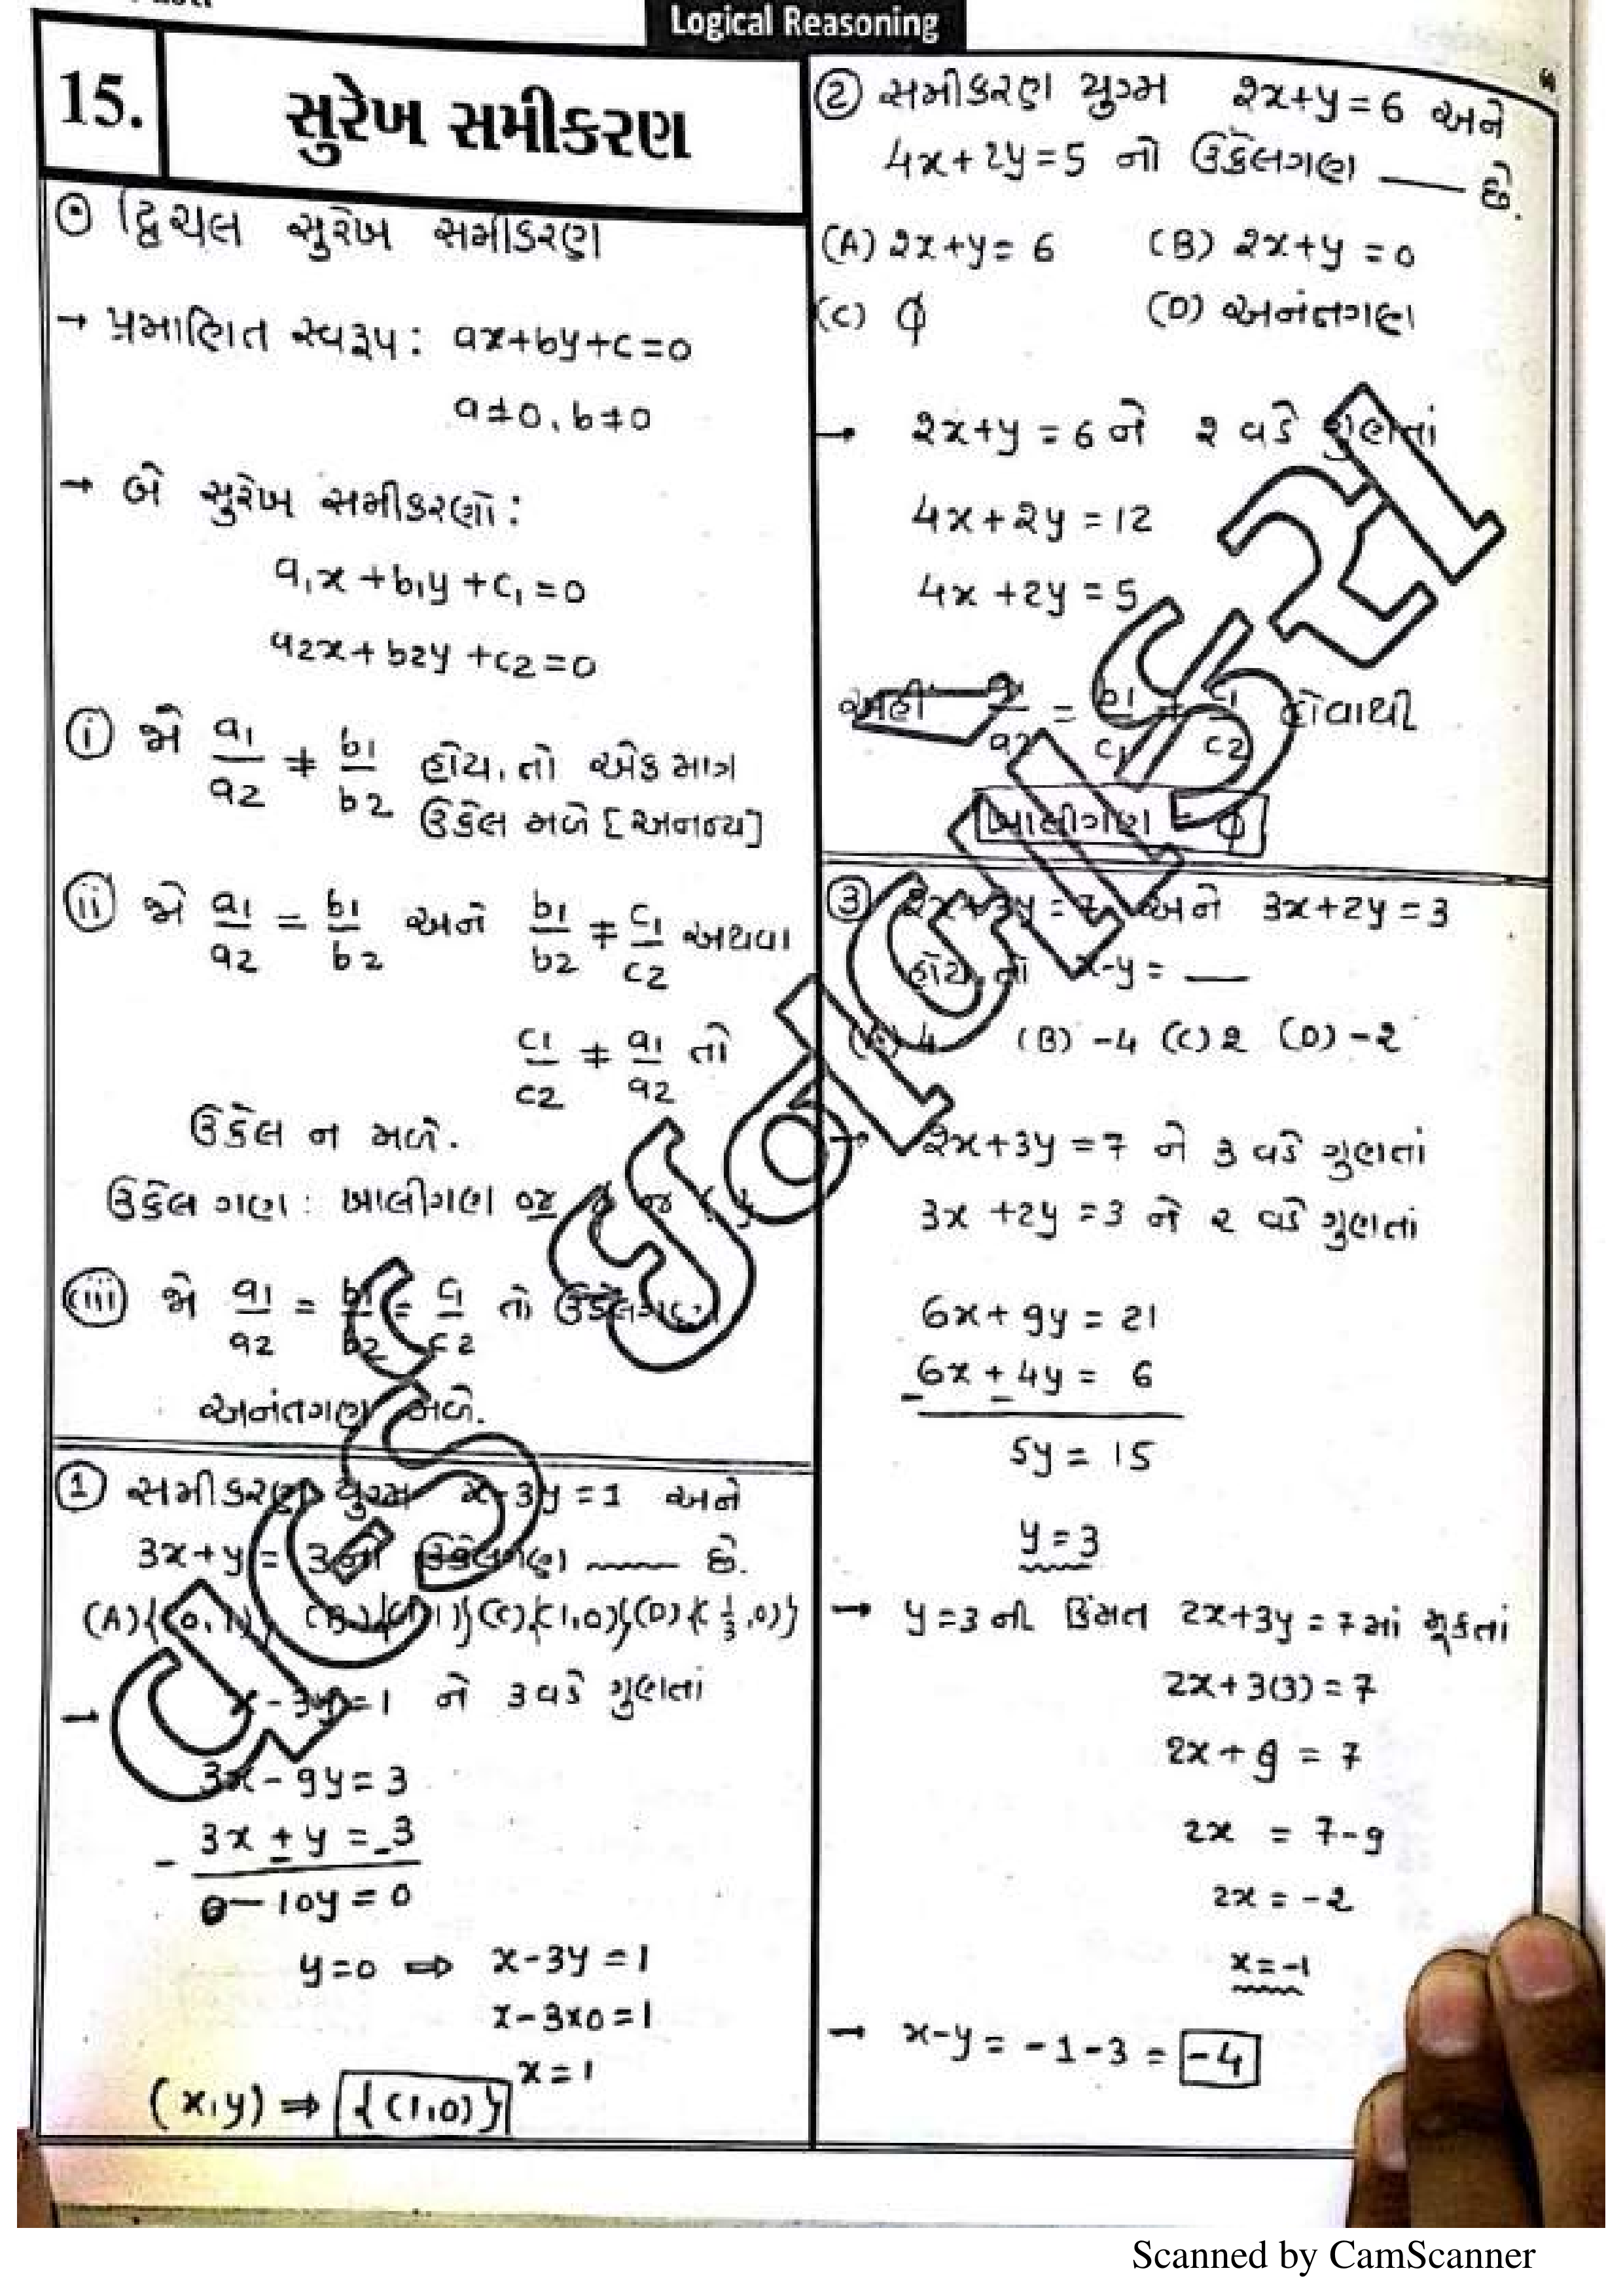 Logical Reasoning
15.
સુરેખ સમીકરણ
⊙ દ્વિચલ સુરેખ સમીકરણ
→ પ્રમાણિત સ્વરૂપ : ax+by+c=0
a≠0, b≠0
→ બે સુરેખ સમીકરણો :
a₁x+b₁y+c₁=0
a2x+b2y+c2=0
(i) જો a1/a2 ≠ b1/b2 હોય, તો એક માત્ર
ઉકેલ મળે [અનન્ય]
(ii) જો a1/a2 = b1/b2 અને b1/b2 ≠ c1/c2 અથવા
c1/c2 ≠ a1/a2 તો
ઉકેલ ન મળે.
ઉકેલ ગણ : ખાલીગણ
(iii) જો a1/a2 = b1/b2 = c1/c2 તો ઉકેલગણ
અનંતગણ મળે.
① સમીકરણ યુગ્મ x-3y=1 અને
3x+y=3નો ઉકેલગણ ____ છે.
(A){(0,1)} (B){(1,1)} (C){(1,0)} (D){(1/3,0)}
→ x-3y=1 ને 3 વડે ગુણતાં
3x-9y=3
- 3x ± y = -3
0-10y=0
y=0 ⇒ x-3y=1
x-3x0=1
x=1
(x,y) ⇒ {(1,0)}
② સમીકરણ યુગ્મ 2x+y=6 અને
4x+2y=5 નો ઉકેલગણ ____ છે.
(A) 2x+y=6 (B) 2x+y=0
(C) ϕ (D) અનંતગણ
→ 2x+y=6 ને 2 વડે ગુણતાં
4x+2y=12
4x+2y=5
અહીં a1/a2 = b1/c1 ≠ c1/c2 હોવાથી
ખાલીગણ = ϕ
③ 2x+3y=7 અને 3x+2y=3
હોય, તો x-y= ____
(A) 4 (B) -4 (C) 2 (D) -2
→ 2x+3y=7 ને 3 વડે ગુણતાં
3x+2y=3 ને 2 વડે ગુણતાં
6x+9y=21
- 6x ± 4y = 6
5y=15
y=3
→ y=3 ની કિંમત 2x+3y=7 માં મૂકતાં
2x+3(3)=7
2x+9=7
2x=7-9
2x=-2
x=-1
→ x-y = -1-3 = -4
Scanned by CamScanner